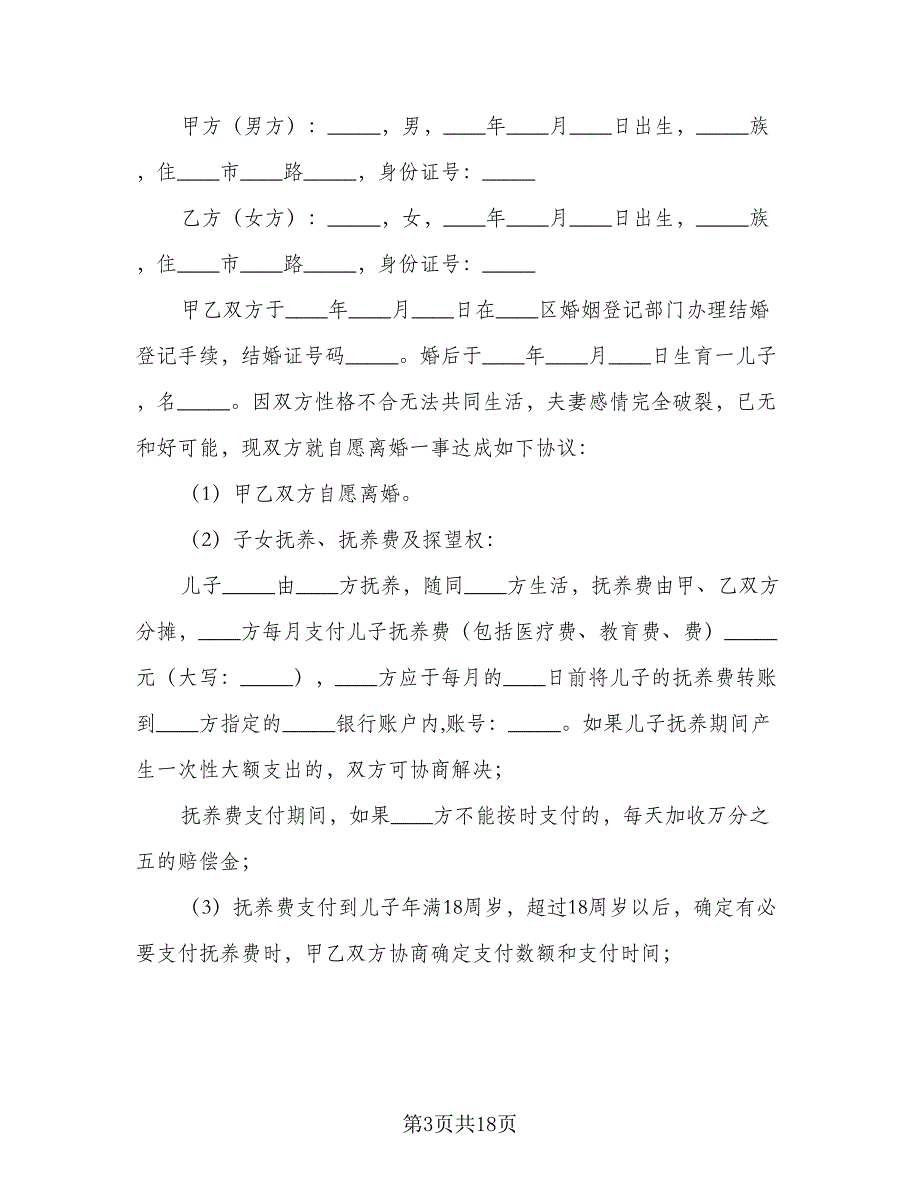 甲方（男方）：_____，男，____年____月____日出生，_____族
，住____市____路_____，身份证号：_____
乙方（女方）：_____，女，____年____月____日出生，_____族
，住____市____路_____，身份证号：_____
甲乙双方于____年____月____日在____区婚姻登记部门办理结婚
登记手续，结婚证号码_____。婚后于____年____月____日生育一儿子
，名_____。因双方性格不合无法共同生活，夫妻感情完全破裂，已无
和好可能，现双方就自愿离婚一事达成如下协议：
（1）甲乙双方自愿离婚。
（2）子女抚养、抚养费及探望权：
儿子_____由____方抚养，随同____方生活，抚养费由甲、乙双方
分摊，____方每月支付儿子抚养费（包括医疗费、教育费、费）_____
元（大写：_____），____方应于每月的____日前将儿子的抚养费转账
到____方指定的_____银行账户内,账号：_____。如果儿子抚养期间产
生一次性大额支出的，双方可协商解决；
抚养费支付期间，如果____方不能按时支付的，每天加收万分之
五的赔偿金；
（3）抚养费支付到儿子年满18周岁，超过18周岁以后，确定有必
要支付抚养费时，甲乙双方协商确定支付数额和支付时间；
第3页共18页